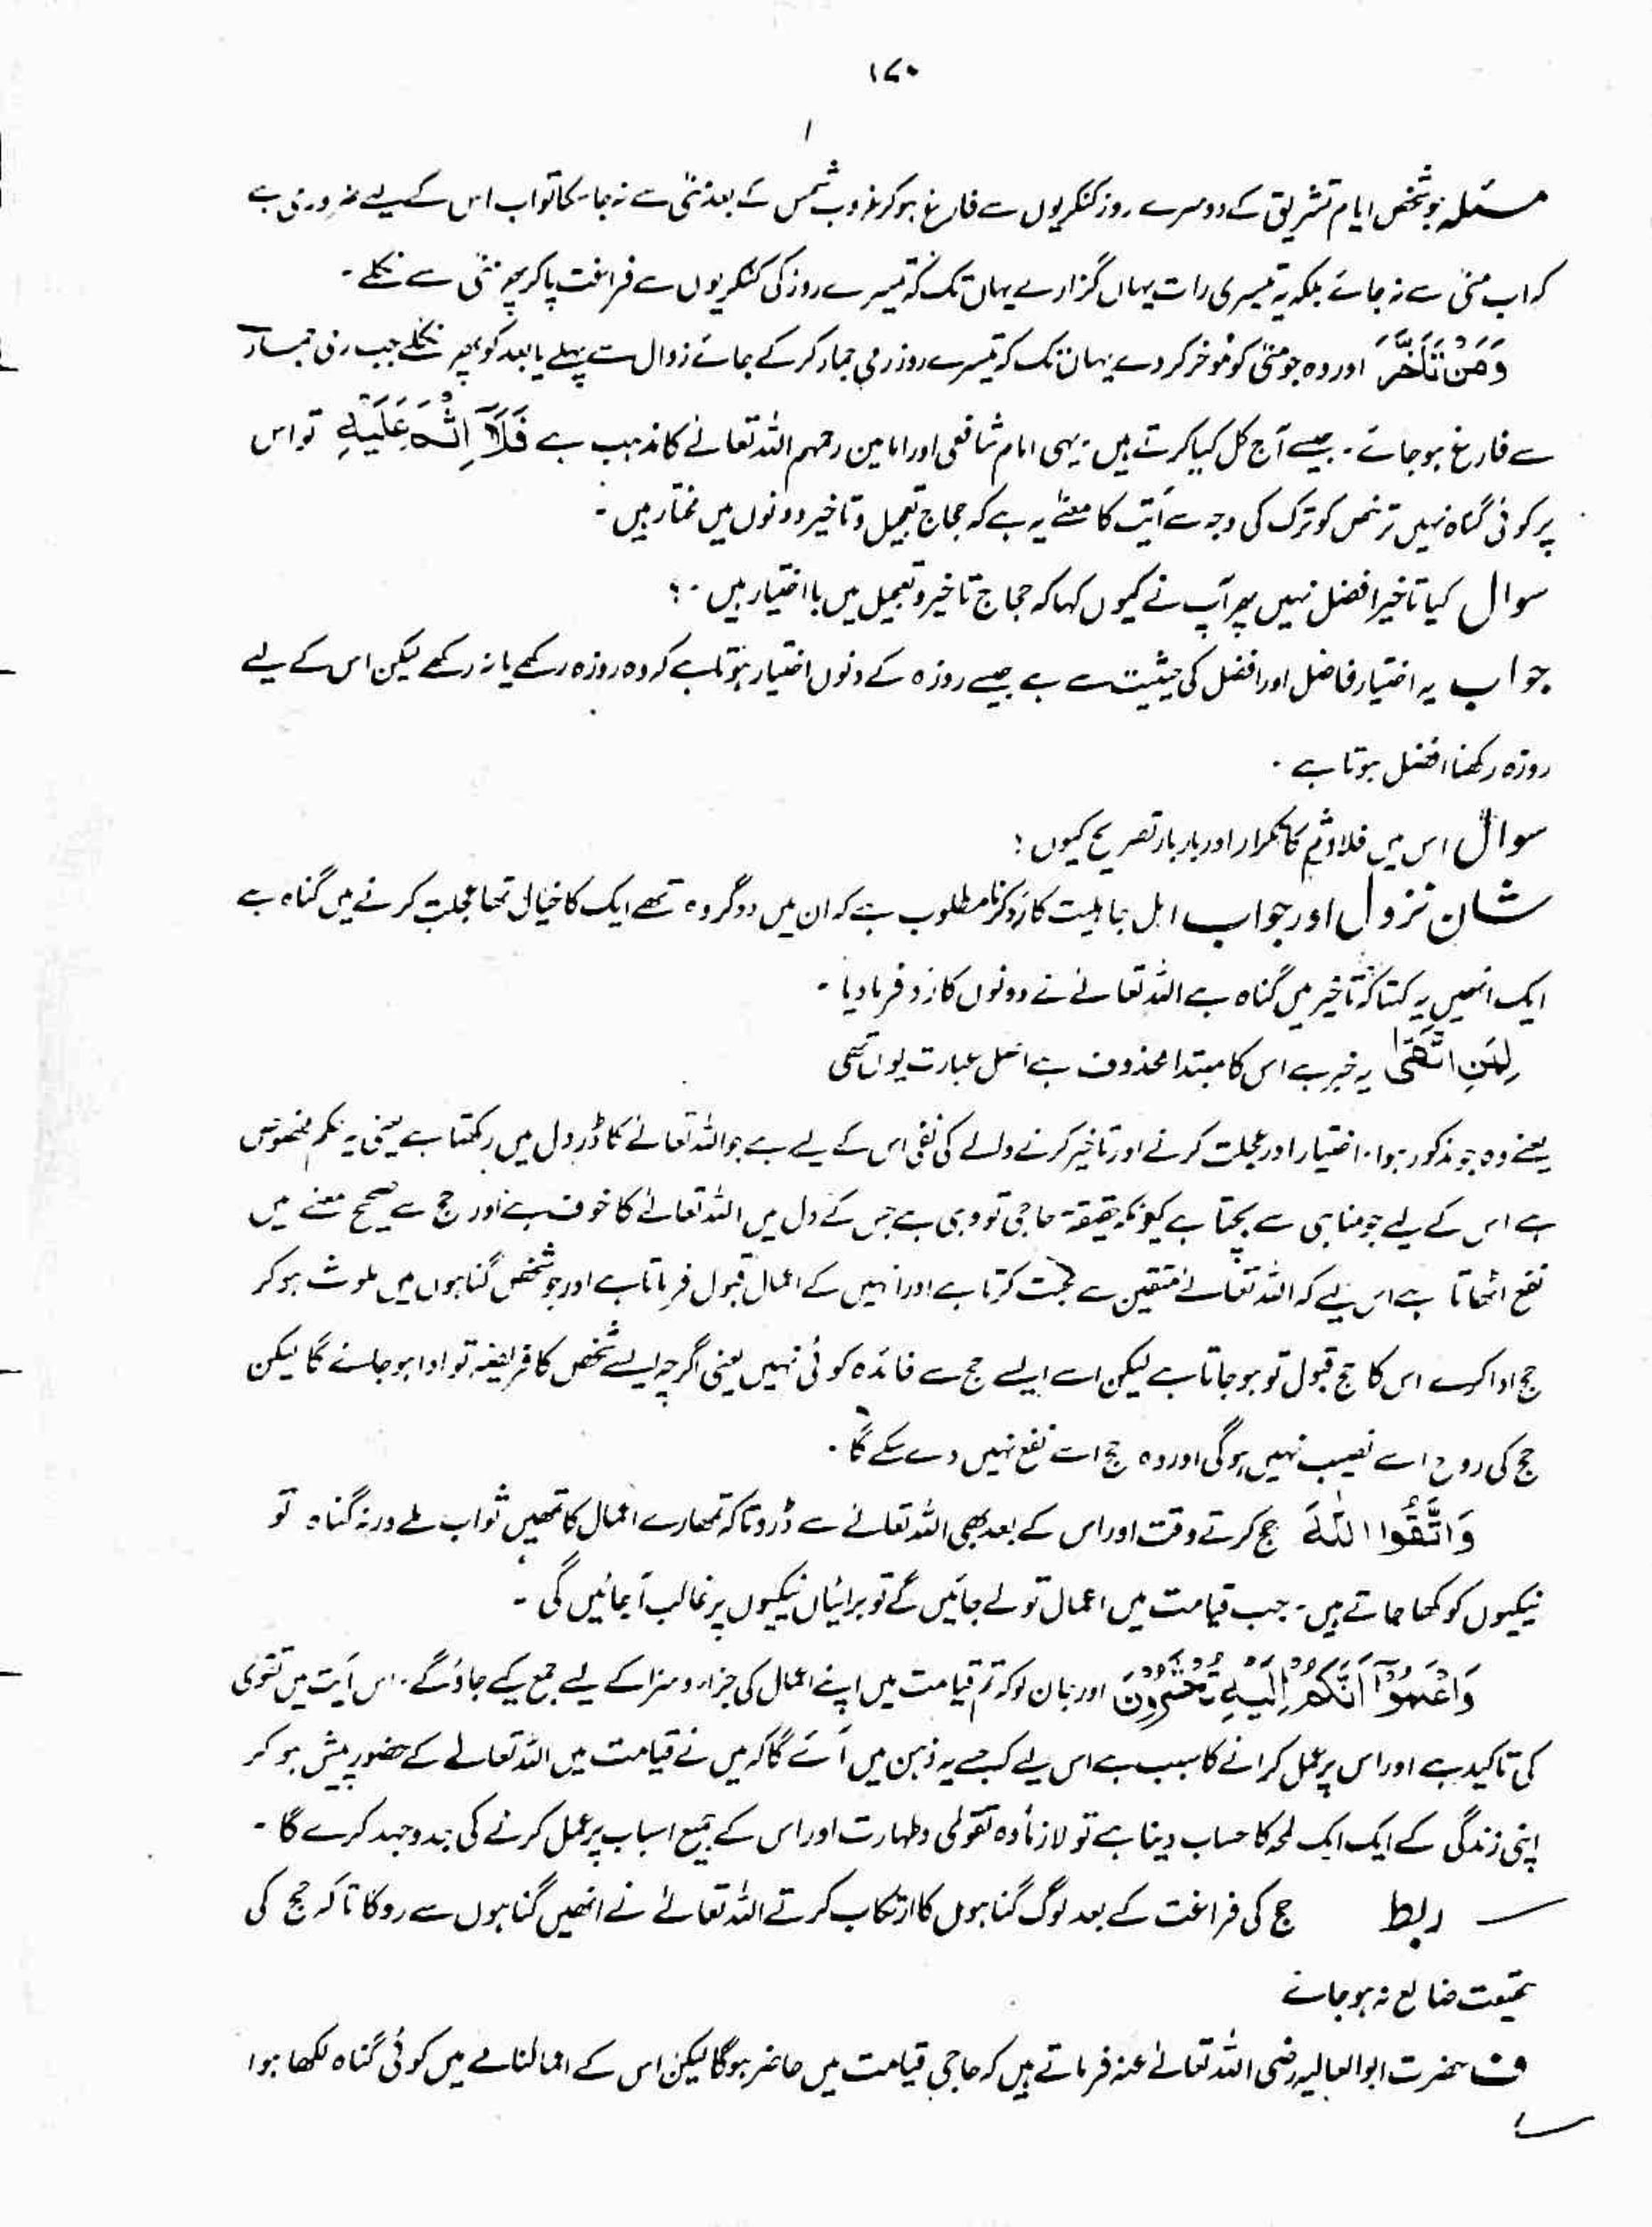 ۱۷۰
مسئلہ جو شخص ایام تشریق کے دوسرے روز کنکریوں سے فارغ ہو کر غروب شمس کے بعد منیٰ سے نہ جا سکا تو اب اس کے لیے ضروری ہے
کہ اب منیٰ سے نہ جائے بلکہ یہ تیسری رات یہاں گزارے یہاں تک کہ تیسرے روز کی کنکریوں سے فراغت پا کر پھر منیٰ سے نکلے ۔
وَمَنْ تَاَخَّرَ اور وہ جو منیٰ کو مؤخر کر دے یہاں تک کہ تیسرے روز رمی جمار کر کے جائے زوال سے پہلے یا بعد کو پھر نکلے جب رمی جمار
سے فارغ ہو جائے ۔ جیسے آج کل کیا کرتے ہیں ۔ یہی امام شافعی اور امامین رحمہم اللہ تعالےٰ کا مذہب ہے فَلَآ اِثْمَ عَلَیْہِ تو اس
پر کوئی گناہ نہیں ترخص کو ترک کی وجہ سے آیت کا معنےٰ یہ ہے کہ حجاج تعجیل و تاخیر دونوں میں مختار ہیں ۔
سوال کیا تاخیر افضل نہیں پھر آپ نے کیوں کہا کہ حجاج تاخیر و تعجیل میں با اختیار ہیں ۔ ؟
جواب یہ اختیار فاضل اور افضل کی حیثیت سے ہے جیسے روزہ کے دنوں اختیار ہوتا ہے کہ وہ روزہ رکھے یا نہ رکھے لیکن اس کے لیے
روزہ رکھنا افضل ہوتا ہے ۔
سوال اس میں فلا اثم کا تکرار اور بار بار تصریح کیوں ؛
شان نزول اور جواب اہل جاہلیت کا رد کرنا مطلوب ہے کہ ان میں دو گروہ تھے ایک کا خیال تھا عجلت کرنے میں گناہ ہے
ایک انھیں یہ کہتا کہ تاخیر میں گناہ ہے اللہ تعالےٰ نے دونوں کا رد فرما دیا ۔
لِمَنِ اتَّقٰی یہ خبر ہے اس کا مبتدا محذوف ہے اصل عبارت یوں تھی
یعنے وہ جو مذکور ہوا ۔ اختیار اور عجلت کرنے اور تاخیر کرنے والے کی نفی اس کے لیے ہے جو اللہ تعالےٰ کا ڈر دل میں رکھتا ہے یعنی یہ حکم مخصوص
ہے اس کے لیے جو مناہی سے بچتا ہے کیونکہ حقیقۃ حاجی تو وہی ہے جس کے دل میں اللہ تعالےٰ کا خوف ہے اور حج سے صحیح معنے میں
نفع اٹھاتا ہے اس لیے کہ اللہ تعالےٰ متقین سے محبت کرتا ہے اور انہیں کے اعمال قبول فرماتا ہے اور جو شخص گناہوں میں ملوث ہو کر
حج ادا کرے اس کا حج قبول تو ہو جاتا ہے لیکن اسے ایسے حج سے فائدہ کوئی نہیں یعنی اگرچہ ایسے شخص کا فریضہ تو ادا ہو جائے گا لیکن
حج کی روح اسے نصیب نہیں ہو گی اور وہ حج اسے نفع نہیں دے سکے گا ۔
وَاتَّقُوا اللّٰہَ حج کرتے وقت اور اس کے بعد بھی اللہ تعالےٰ سے ڈرو تا کہ تمھارے اعمال کا تمھیں ثواب ملے ورنہ گناہ تو
نیکیوں کو کھا جاتے ہیں ۔ جب قیامت میں اعمال تولے جائیں گے تو برائیاں نیکیوں پر غالب آ جائیں گی ۔
وَاعْلَمُوْٓا اَنَّکُمْ اِلَیْہِ تُحْشَرُوْنَ اور جان لو کہ تم قیامت میں اپنے اعمال کی جزاء و سزا کے لیے جمع کیے جاؤ گے ۔ اس آیت میں تقوی
کی تاکید ہے اور اس پر عمل کرانے کا سبب ہے اس لیے کہ جسے یہ ذہن میں آئے گا کہ میں نے قیامت میں اللہ تعالےٰ کے حضور پیش ہو کر
اپنی زندگی کے ایک ایک لمحہ کا حساب دینا ہے تو لازماً وہ تقویٰ و طہارت اور اس کے جمیع اسباب پر عمل کرنے کی جدوجہد کرے گا ۔
ربط حج کی فراغت کے بعد لوگ گناہوں کا ارتکاب کرتے اللہ تعالےٰ نے انھیں گناہوں سے روکا تا کہ حج کی
ضائع نہ ہو جائے
ف حضرت ابو العالیہ رضی اللہ تعالےٰ عنہ فرماتے ہیں کہ حاجی قیامت میں حاضر ہو گا لیکن اس کے اعمالنامے میں کوئی گناہ لکھا ہوا